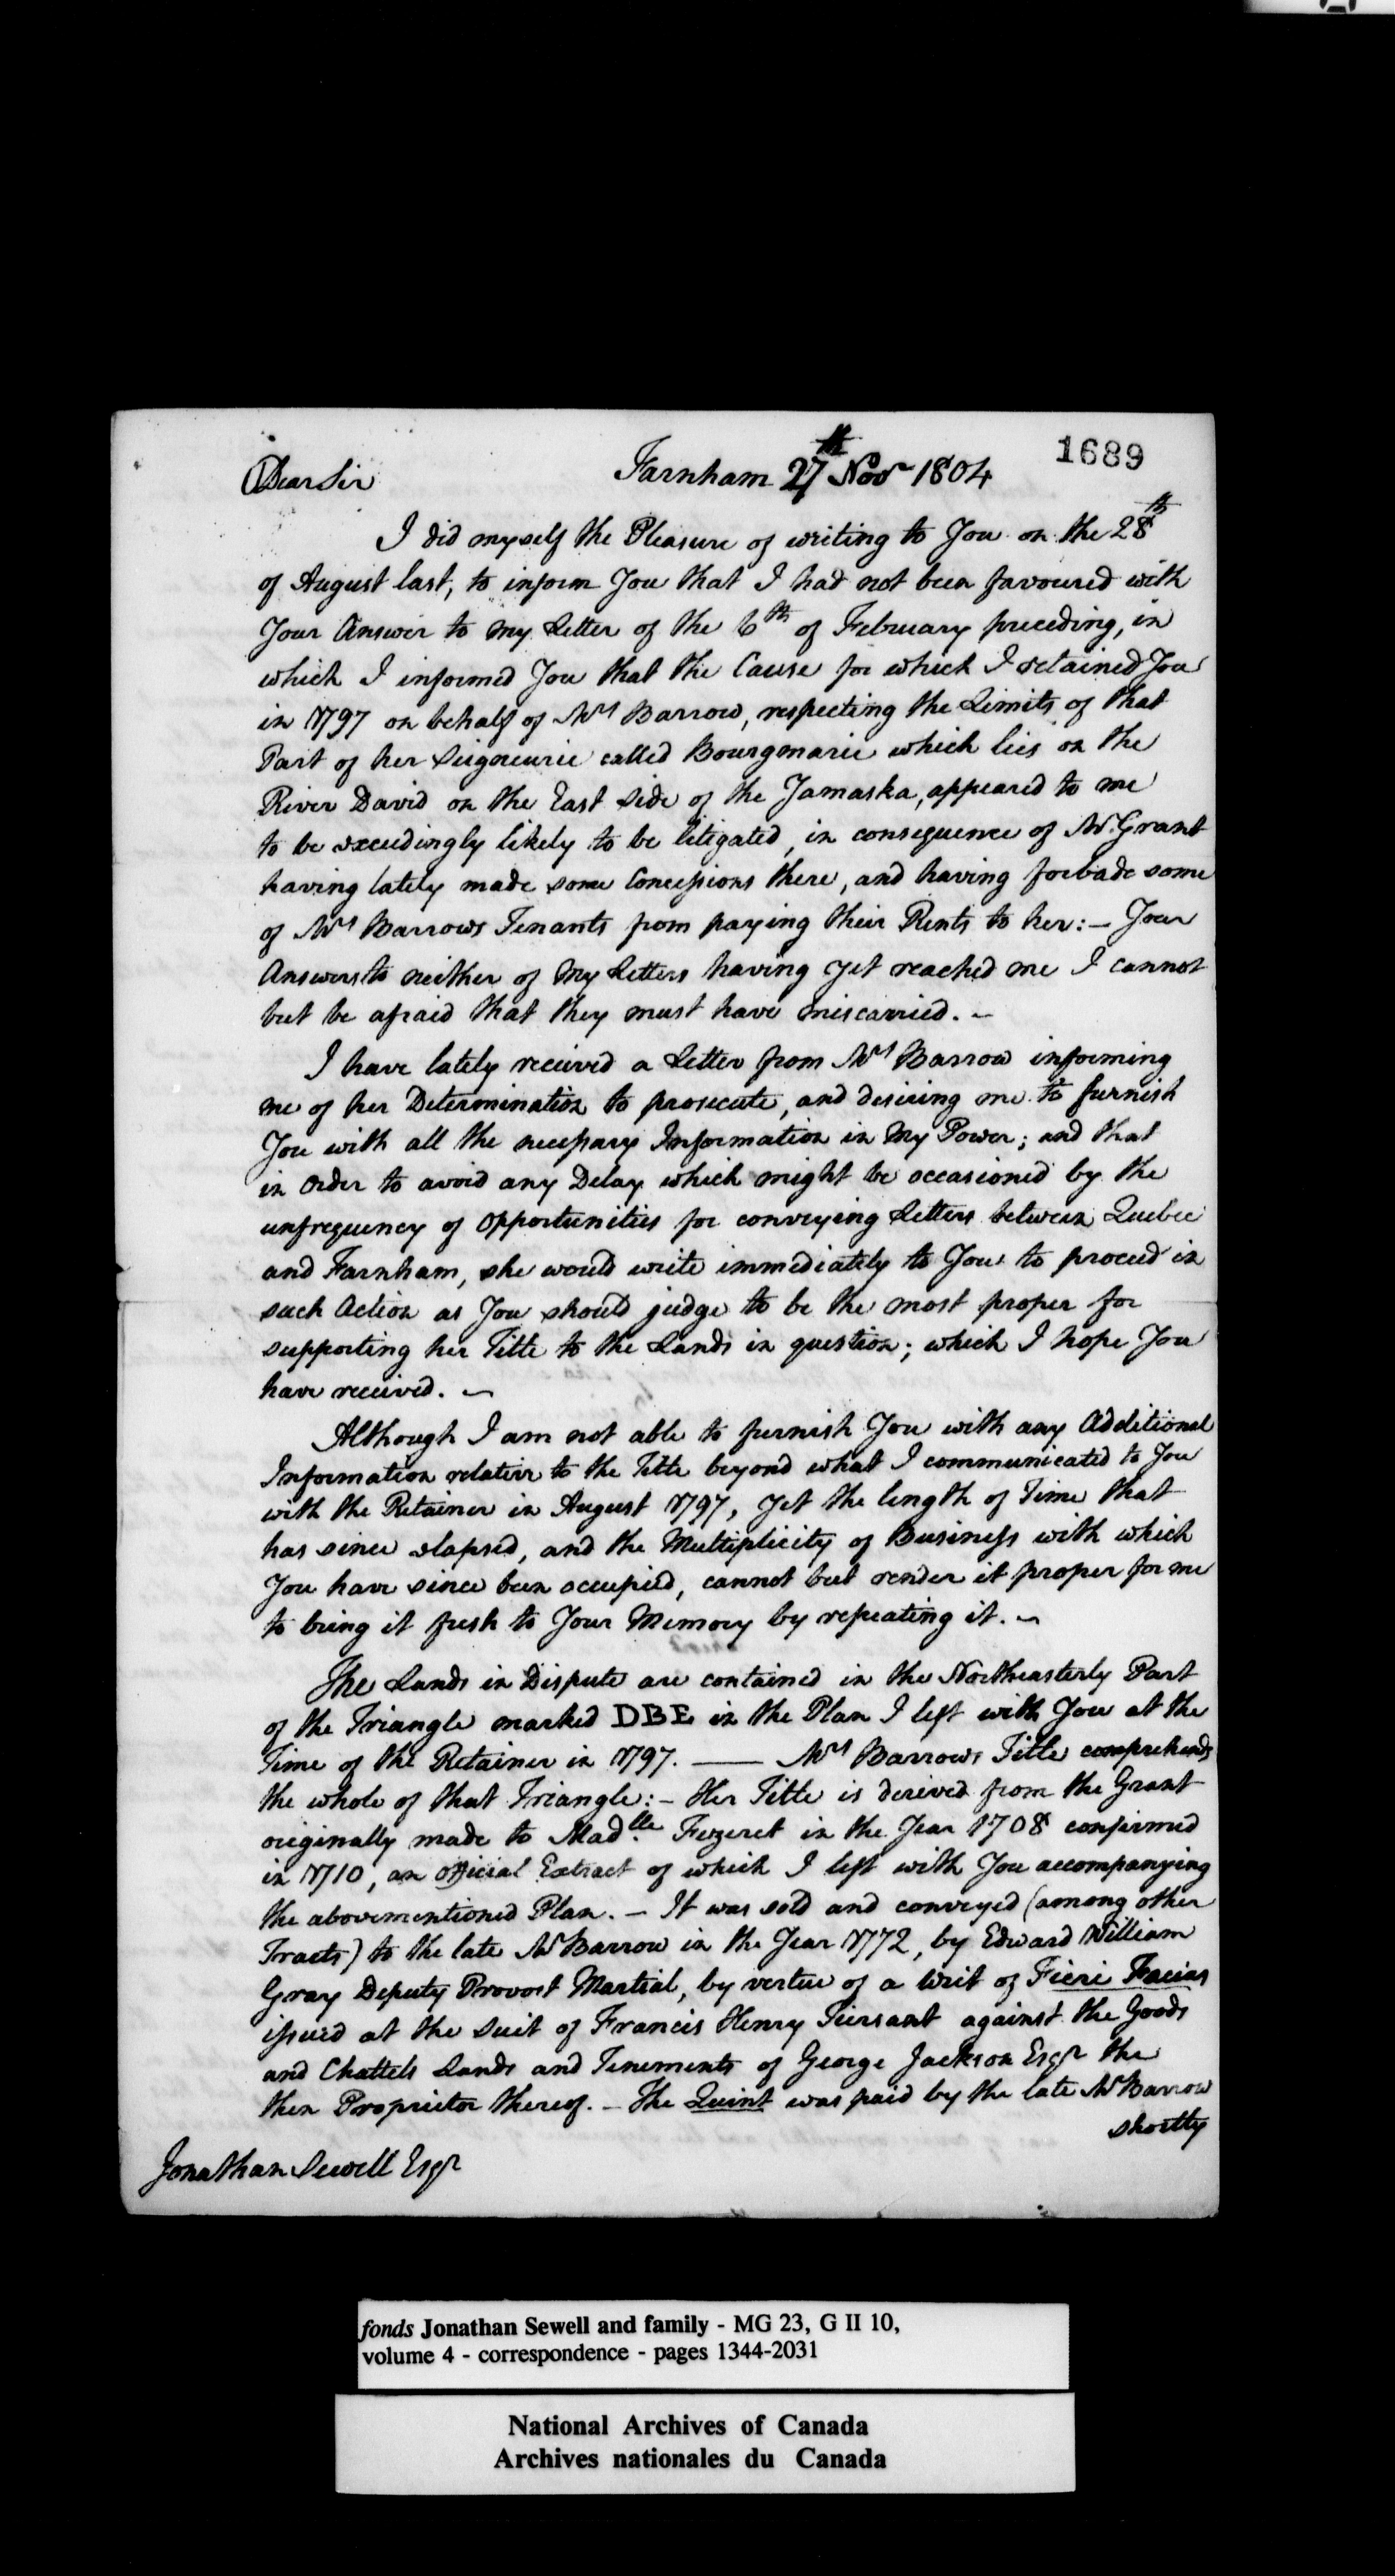 1689
Dear Sir Farnham 27th Novr 1804
I did myself the Pleasure of writing to You on the 28th
of August last, to inform You that I had not been favoured with
Your Answer to my Letter of the 6th of February preceding, in
which I informed You that the Cause for which I retained You
in 1797 on behalf of Mrs Barrow, respecting the Limits of that
Part of her Seigneurie called Bourgmarie which lies on the
River David on the East Side of the Yamaska, appeared to me
to be exceedingly likely to be litigated, in consequence of Mr Grant
having lately made some Concessions there, and having forbade some
of Mrs Barrows Tenants from paying their Rents to her:— Your
Answers to neither of My Letters having yet reached me I cannot
but be afraid that they must have miscarried. —
I have lately received a Letter from Mrs Barrow informing
me of her Determination to prosecute, and desiring me to furnish
You with all the necessary Information in My Power; and that
in Order to avoid any Delay which might be occasioned by the
unfrequency of Opportunities for conveying Letters between Quebec
and Farnham, she would write immediately to You to proceed in
such Action as You should judge to be the most proper for
supporting her Title to the Lands in question; which I hope You
have received. —
Although I am not able to furnish You with any Additional
Information relative to the Title beyond what I communicated to You
with the Retainer in August 1797, yet the length of Time that
has since elapsed, and the Multiplicity of Business with which
You have since been occupied, cannot but render it proper for me
to bring it fresh to Your Memory by repeating it. —
The Lands in Dispute are contained in the Northeasterly Part
of the Triangle marked DBE in the Plan I left with You at the
Time of the Retainer in 1797. — Mrs Barrows Title comprehends
the whole of that Triangle:— Her Title is derived from the Grant
originally made to Madlle Fezeret in the Year 1708 confirmed
in 1710, an Official Extract of which I left with You accompanying
the abovementioned Plan. — It was sold and conveyed (among other
Tracts) to the late Mr Barrow in the Year 1772, by Edward William
Gray Deputy Provost Martial, by vertue of a Writ of Fieri Facias
issued at the Suit of Francis Henry Tiersant against the Goods
and Chattels Lands and Tenements of George Jackson Esqr the
then Proprietor thereof. — The Quint was paid by the late Mr Barrow
shortly
Jonathan Sewell Esqr
fonds Jonathan Sewell and family - MG 23, G II 10,
volume 4 - correspondence - pages 1344-2031
National Archives of Canada
Archives nationales du Canada